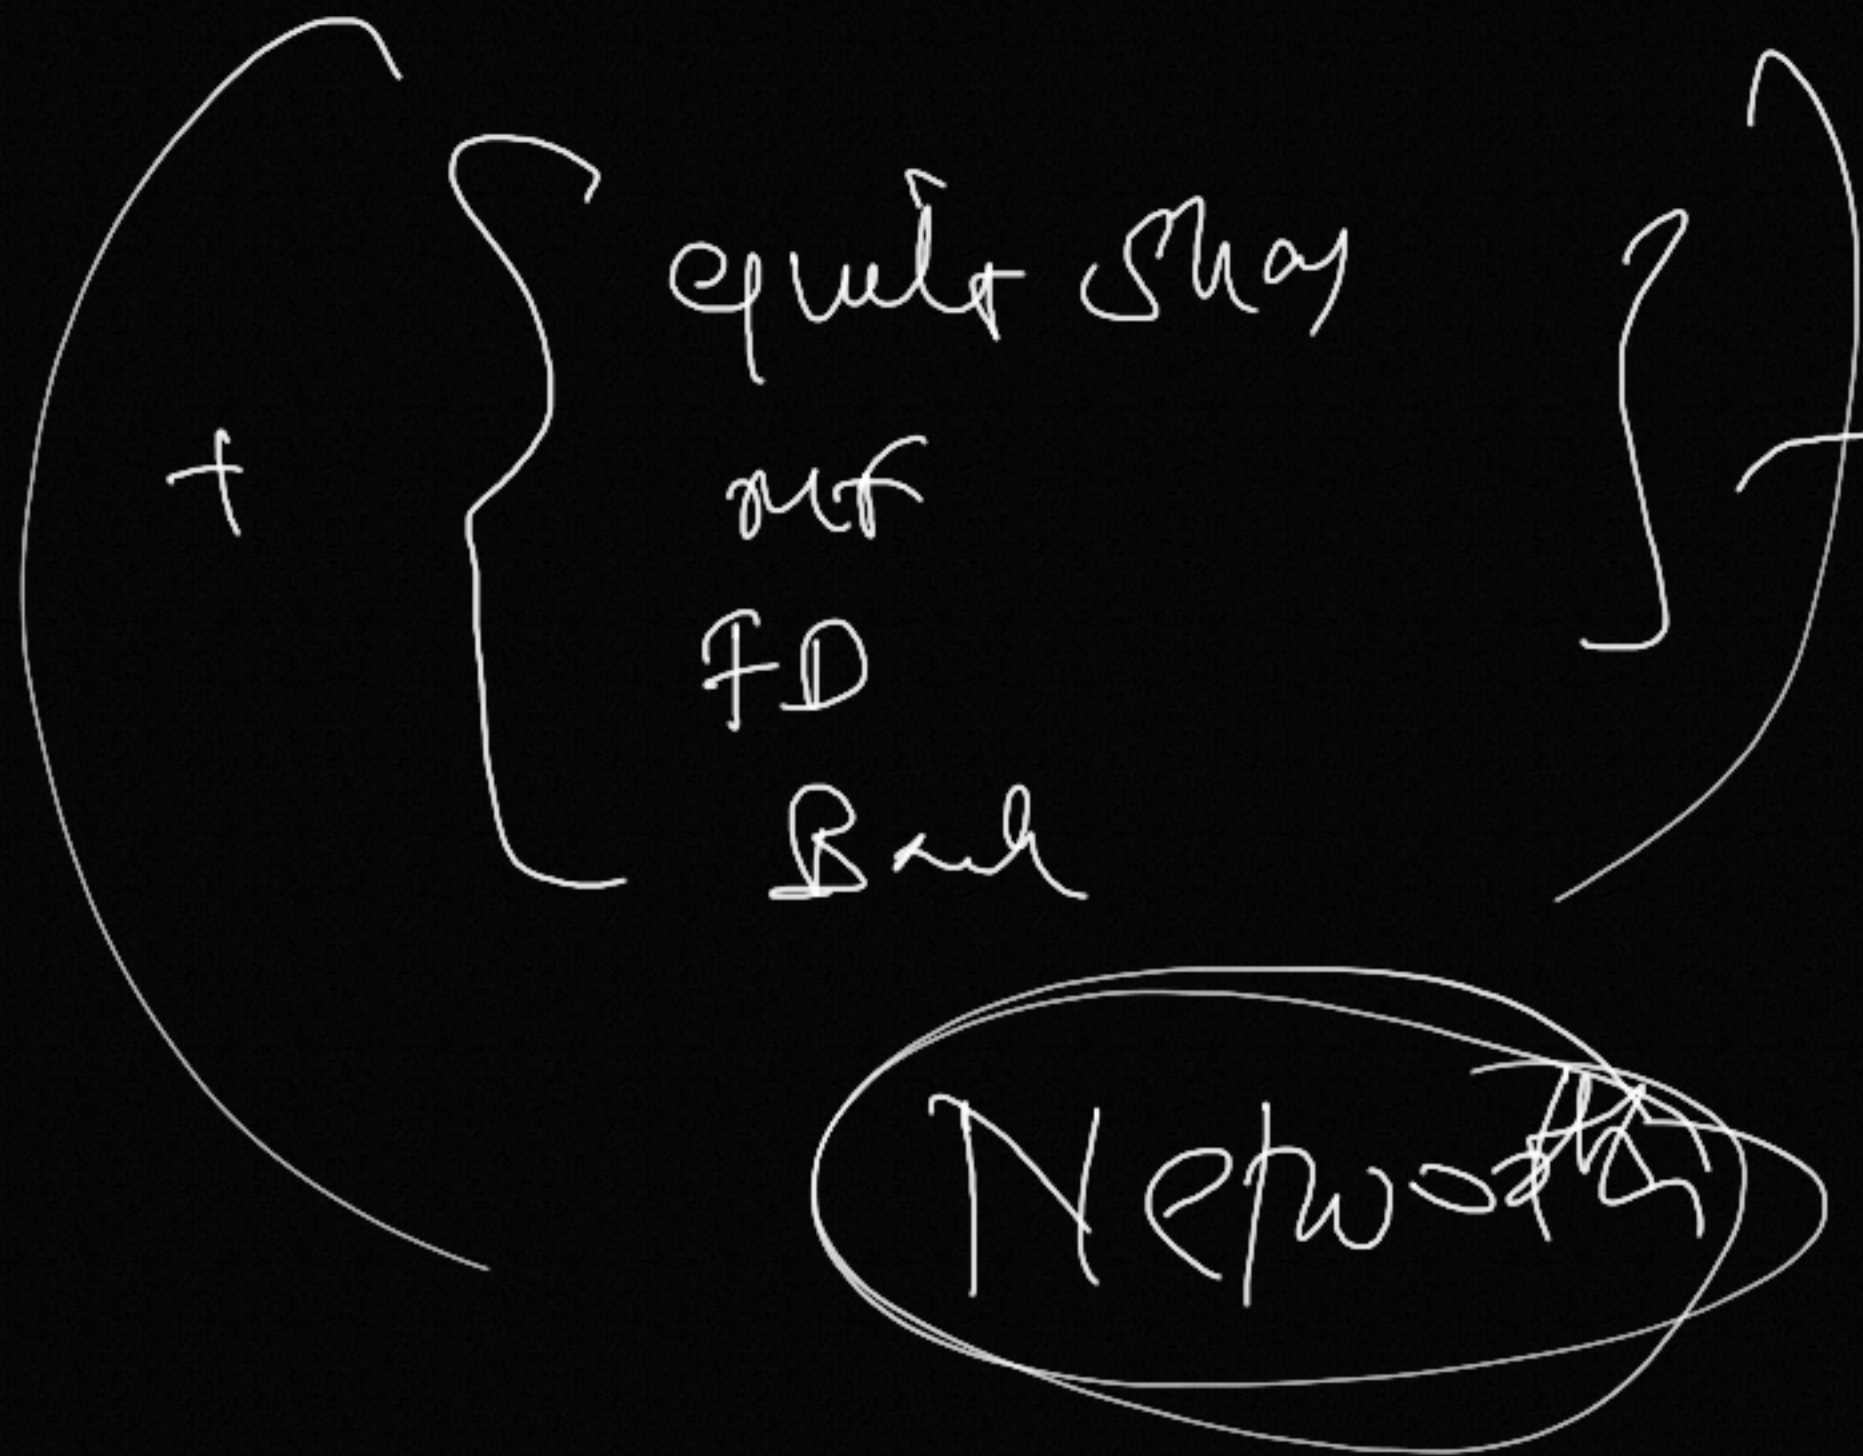 equity Shay
+
MF
FD
Bank
Networth